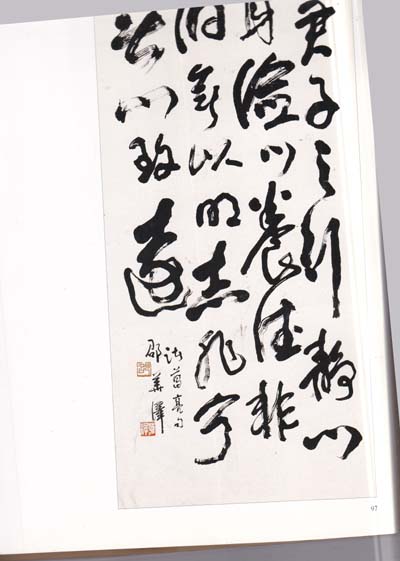 君子之行静以
身儉以養德非
泊無以明志非宁
無以致遠
諸葛亮句
邵華澤
97